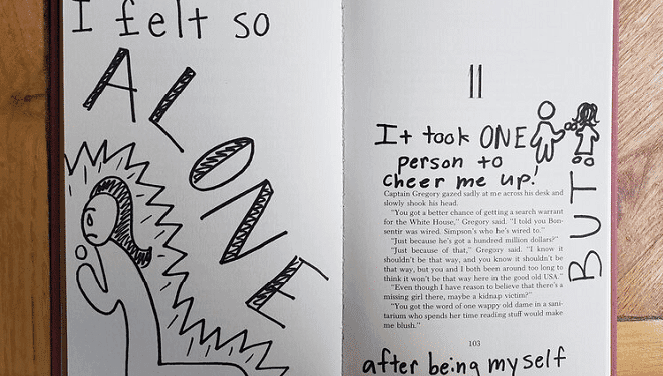 I felt so
ALONE
11
It took ONE
person to
cheer me up!
BUT
Captain Gregory gazed sadly at me across his desk and
slowly shook his head.
"You got a better chance of getting a search warrant
for the White House," Gregory said. "I told you Bon-
sentir was wired. Simpson's who he's wired to."
"Just because he's got a hundred million dollars?"
"Just because of that," Gregory said. "I know it
shouldn't be that way, and you know it shouldn't be
that way, but you and I both been around too long to
think it won't be that way here in the good old USA."
"Even though I have reason to believe that there's a
missing girl there, maybe a kidnap victim?"
"You got the word of one wappy old dame in a sani-
tarium who spends her time reading stuff would make
me blush."
103
after being myself